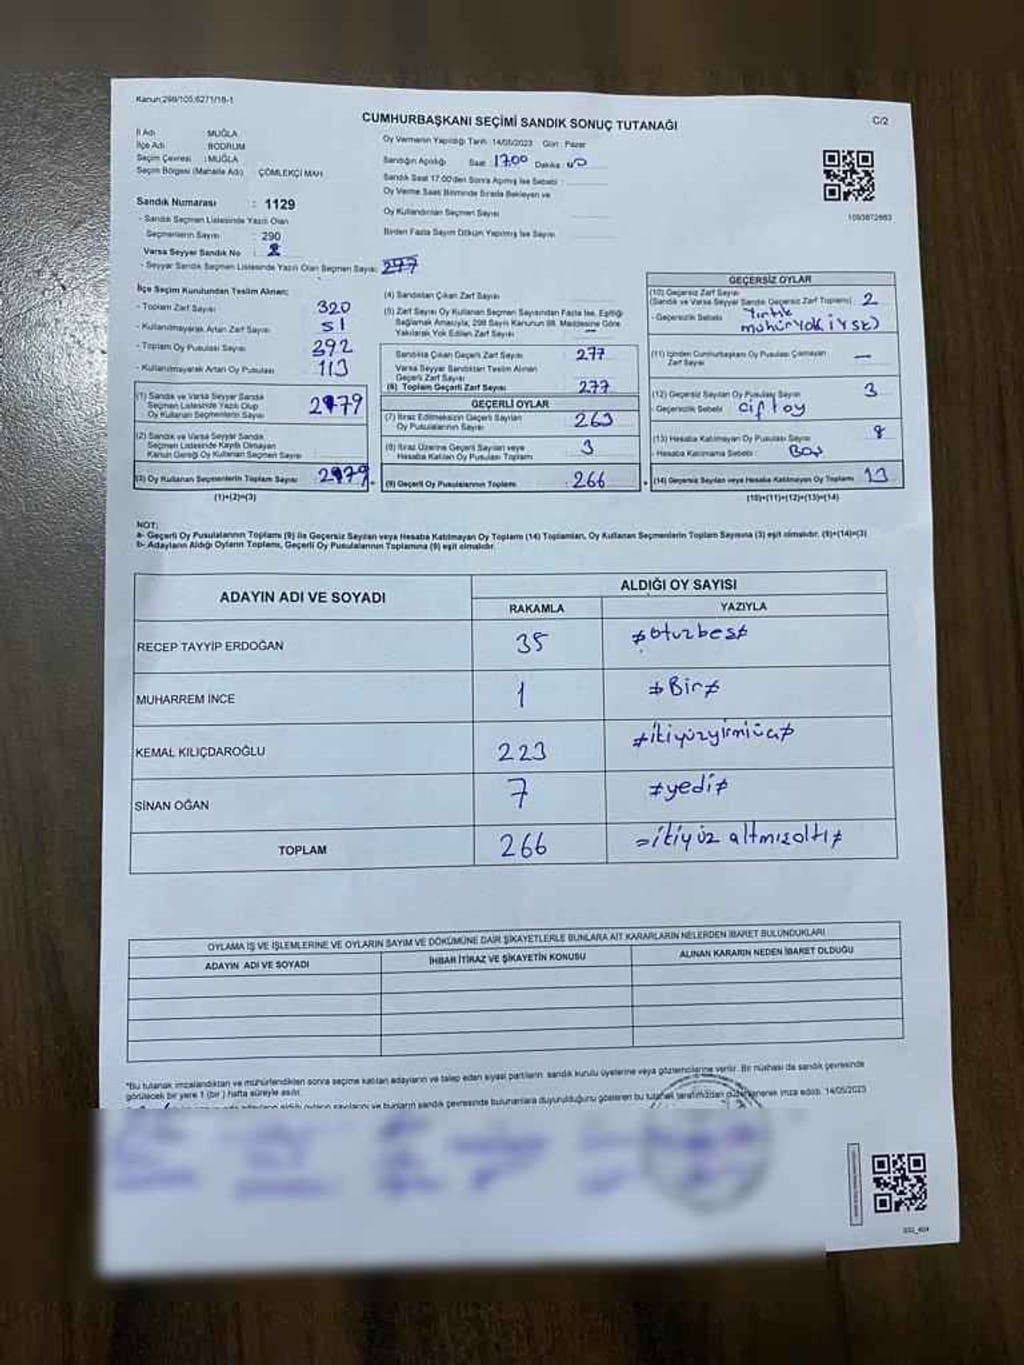 Kanun:298/105;6271/18-1
CUMHURBAŞKANI SEÇİMİ SANDIK SONUÇ TUTANAĞI
C/2
İl Adı MUĞLA
İlçe Adı BODRUM
Seçim Çevresi : MUĞLA
Seçim Bölgesi (Mahalle Adı) ÇÖMLEKÇİ MAH.
Oy Vermenin Yapıldığı Tarih 14/05/2023 Gün : Pazar
Sandığın Açıldığı Saat : 17.00 Dakika :
Sandık Saat 17.00'den Sonra Açılmış İse Sebebi :
Oy Verme Saati Bitiminde Sırada Bekleyen ve
Oy Kullandırılan Seçmen Sayısı
Birden Fazla Sayım Döküm Yapılmış İse Sayısı
Sandık Numarası : 1129
- Sandık Seçmen Listesinde Yazılı Olan
Seçmenlerin Sayısı : 290
Varsa Seyyar Sandık No :
- Seyyar Sandık Seçmen Listesinde Yazılı Olan Seçmen Sayısı:
İlçe Seçim Kurulundan Teslim Alınan;
- Toplam Zarf Sayısı 320
- Kullanılmayarak Artan Zarf Sayısı 51
- Toplam Oy Pusulası Sayısı 392
- Kullanılmayarak Artan Oy Pusulası 113
(1) Sandık ve Varsa Seyyar Sandık
Seçmen Listesinde Yazılı Olup
Oy Kullanan Seçmenlerin Sayısı
(2) Sandık ve Varsa Seyyar Sandık
Seçmen Listesinde Kayıtlı Olmayan
Kanun Gereği Oy Kullanan Seçmen Sayısı
(3) Oy Kullanan Seçmenlerin Toplam Sayısı
(1)+(2)=(3)
(4) Sandıktan Çıkan Zarf Sayısı
(5) Zarf Sayısı Oy Kullanan Seçmen Sayısından Fazla İse, Eşitliği
Sağlamak Amacıyla, 298 Sayılı Kanunun 98. Maddesine Göre
Yakılarak Yok Edilen Zarf Sayısı —
Sandıkta Çıkan Geçerli Zarf Sayısı : 277
Varsa Seyyar Sandıktan Teslim Alınan
Geçerli Zarf Sayısı
(6) Toplam Geçerli Zarf Sayısı : 277
GEÇERLİ OYLAR
(7) İtiraz Edilmeksizin Geçerli Sayılan
Oy Pusulalarının Sayısı : 263
(8) İtiraz Üzerine Geçerli Sayılan veya
Hesaba Katılan Oy Pusulası Toplamı : 3
(9) Geçerli Oy Pusulalarının Toplamı : 266
1093872883
GEÇERSİZ OYLAR
(10) Geçersiz Zarf Sayısı
(Sandık ve Varsa Seyyar Sandık Geçersiz Zarf Toplamı) 2
- Geçersizlik Sebebi : Yırtık
mühür yok (YSK)
(11) İçinden Cumhurbaşkanı Oy Pusulası Çıkmayan
Zarf Sayısı —
(12) Geçersiz Sayılan Oy Pusulası Sayısı 3
- Geçersizlik Sebebi : Çift oy
(13) Hesaba Katılmayan Oy Pusulası Sayısı 8
- Hesaba Katılmama Sebebi : Boş
(14) Geçersiz Sayılan veya Hesaba Katılmayan Oy Toplamı : 13
(10)+(11)+(12)+(13)=(14)
NOT:
a- Geçerli Oy Pusulalarının Toplamı (9) ile Geçersiz Sayılan veya Hesaba Katılmayan Oy Toplamı (14) Toplamları, Oy Kullanan Seçmenlerin Toplam Sayısına (3) eşit olmalıdır. (9)+(14)=(3)
b- Adayların Aldığı Oyların Toplamı, Geçerli Oy Pusulalarının Toplamına (9) eşit olmalıdır.
ADAYIN ADI VE SOYADI
ALDIĞI OY SAYISI
RAKAMLA YAZIYLA
RECEP TAYYİP ERDOĞAN 35 ≠otuzbeş≠
MUHARREM İNCE 1 ≠Bir≠
KEMAL KILIÇDAROĞLU 223 ≠ikiyüzyirmiüç≠
SİNAN OĞAN 7 ≠yedi≠
TOPLAM 266 =ikiyüz altmışaltı≠
OYLAMA İŞ VE İŞLEMLERİNE VE OYLARIN SAYIM VE DÖKÜMÜNE DAİR ŞİKAYETLERLE BUNLARA AİT KARARLARIN NELERDEN İBARET BULUNDUKLARI
ADAYIN ADI VE SOYADI İHBAR İTİRAZ VE ŞİKAYETİN KONUSU ALINAN KARARIN NEDEN İBARET OLDUĞU
*Bu tutanak imzalandıktan ve mühürlendikten sonra seçime katılan adayların ve talep eden siyasi partilerin sandık kurulu üyelerine veya gözlemcilerine verilir. Bir nüshası da sandık çevresinde
görülecek bir yere 1 (bir) hafta süreyle asılır.
adayların aldığı oyların sayılarını ve bunların sandık çevresinde bulunanlara duyurulduğunu gösteren bu tutanak tarafımızdan düzenlenerek imza edildi. 14/05/2023